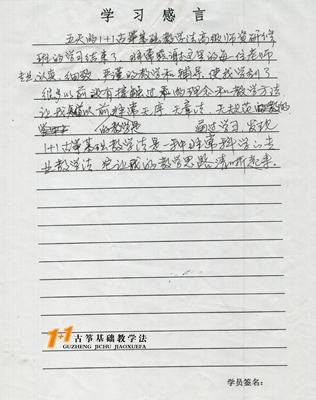 学 习 感 言
五天的1+1古筝基础教学法高级师资研修
班的学习结束了,非常感谢这里的每一位老师
认真、细致、严谨的教学和辅导,使我学到了
很多以前没有接触过的理念和教学方法
让我 以前非常无序、无章法、无规范
的教学 通过学习,发现
1+1古筝基础教学法是一种非常科学的专
业教学法 它让我的教学思路清晰起来。
1+1 古筝基础教学法
GUZHENG JICHU JIAOXUEFA
学员签名: